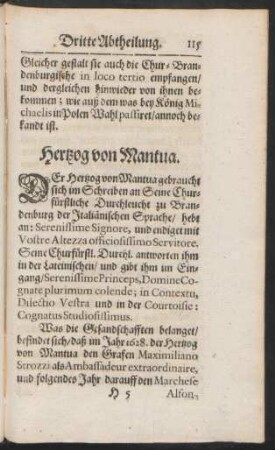 Dritte Abtheilung. 115
Gleicher gestalt sie auch die Chur-Bran-
denburgische in loco tertio empfangen/
und dergleichen hinwieder von ihnen be-
kommen; wie auß dem was bey König Mi-
chaelis in Polen Wahl passiret/annoch be-
kandt ist.
Hertzog von Mantua.
DEr Hertzog von Mantua gebraucht
sich im Schreiben an Seine Chur-
fürstliche Durchleucht zu Bran-
denburg der Italiänischen Sprache/ hebt
an: Serenissime Signore, und endiget mit
Vostre Altezza officiosissimo Servitore.
Seine Churfürstl. Durchl. antworten ihm
in der Lateinischen/ und gibt ihm im Ein-
gang/Serenissime Princeps, Domine Co-
gnate plurimum colende; in Contextu,
Dilectio Vestra und in der Courtoisie:
Cognatus Studiosissimus.
Was die Gesandschafften belanget/
befindet sich/ daß im Jahr 1628. der Hertzog
von Mantua den Grafen Maximiliano
Strozzi als Ambassadeur extraordinaire,
und folgendes Jahr darauff den Marchese
H 5 Alfon-